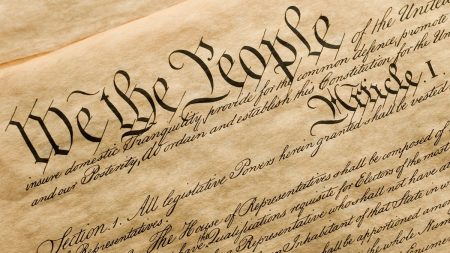 We the People of the United
insure domestic Tranquility, provide for the common defence, promote
and our Posterity, do ordain and establish this Constitution for the Un
Article. I.
Section. 1. All legislative Powers herein granted shall be vested
Representatives.
The House of Representatives shall be composed of
Qualifications requisite for Electors of the most
a Representative who shall not have a
Inhabitant of that State in w
shall be apportioned amo
the whole Num